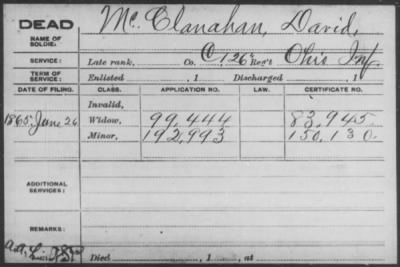 DEAD Mc Clanahan, David,
NAME OF SOLDIER:
SERVICE: Late rank, Co. C, 126 Reg't Ohio Inf.
TERM OF SERVICE: Enlisted , 1 Discharged , 1
DATE OF FILING. CLASS. APPLICATION NO. LAW. CERTIFICATE NO.
Invalid,
1865, June 26 Widow, 99,444 83,945.
Minor, 192,993 150,130.
ADDITIONAL SERVICES:
REMARKS:
Died , 1 , at